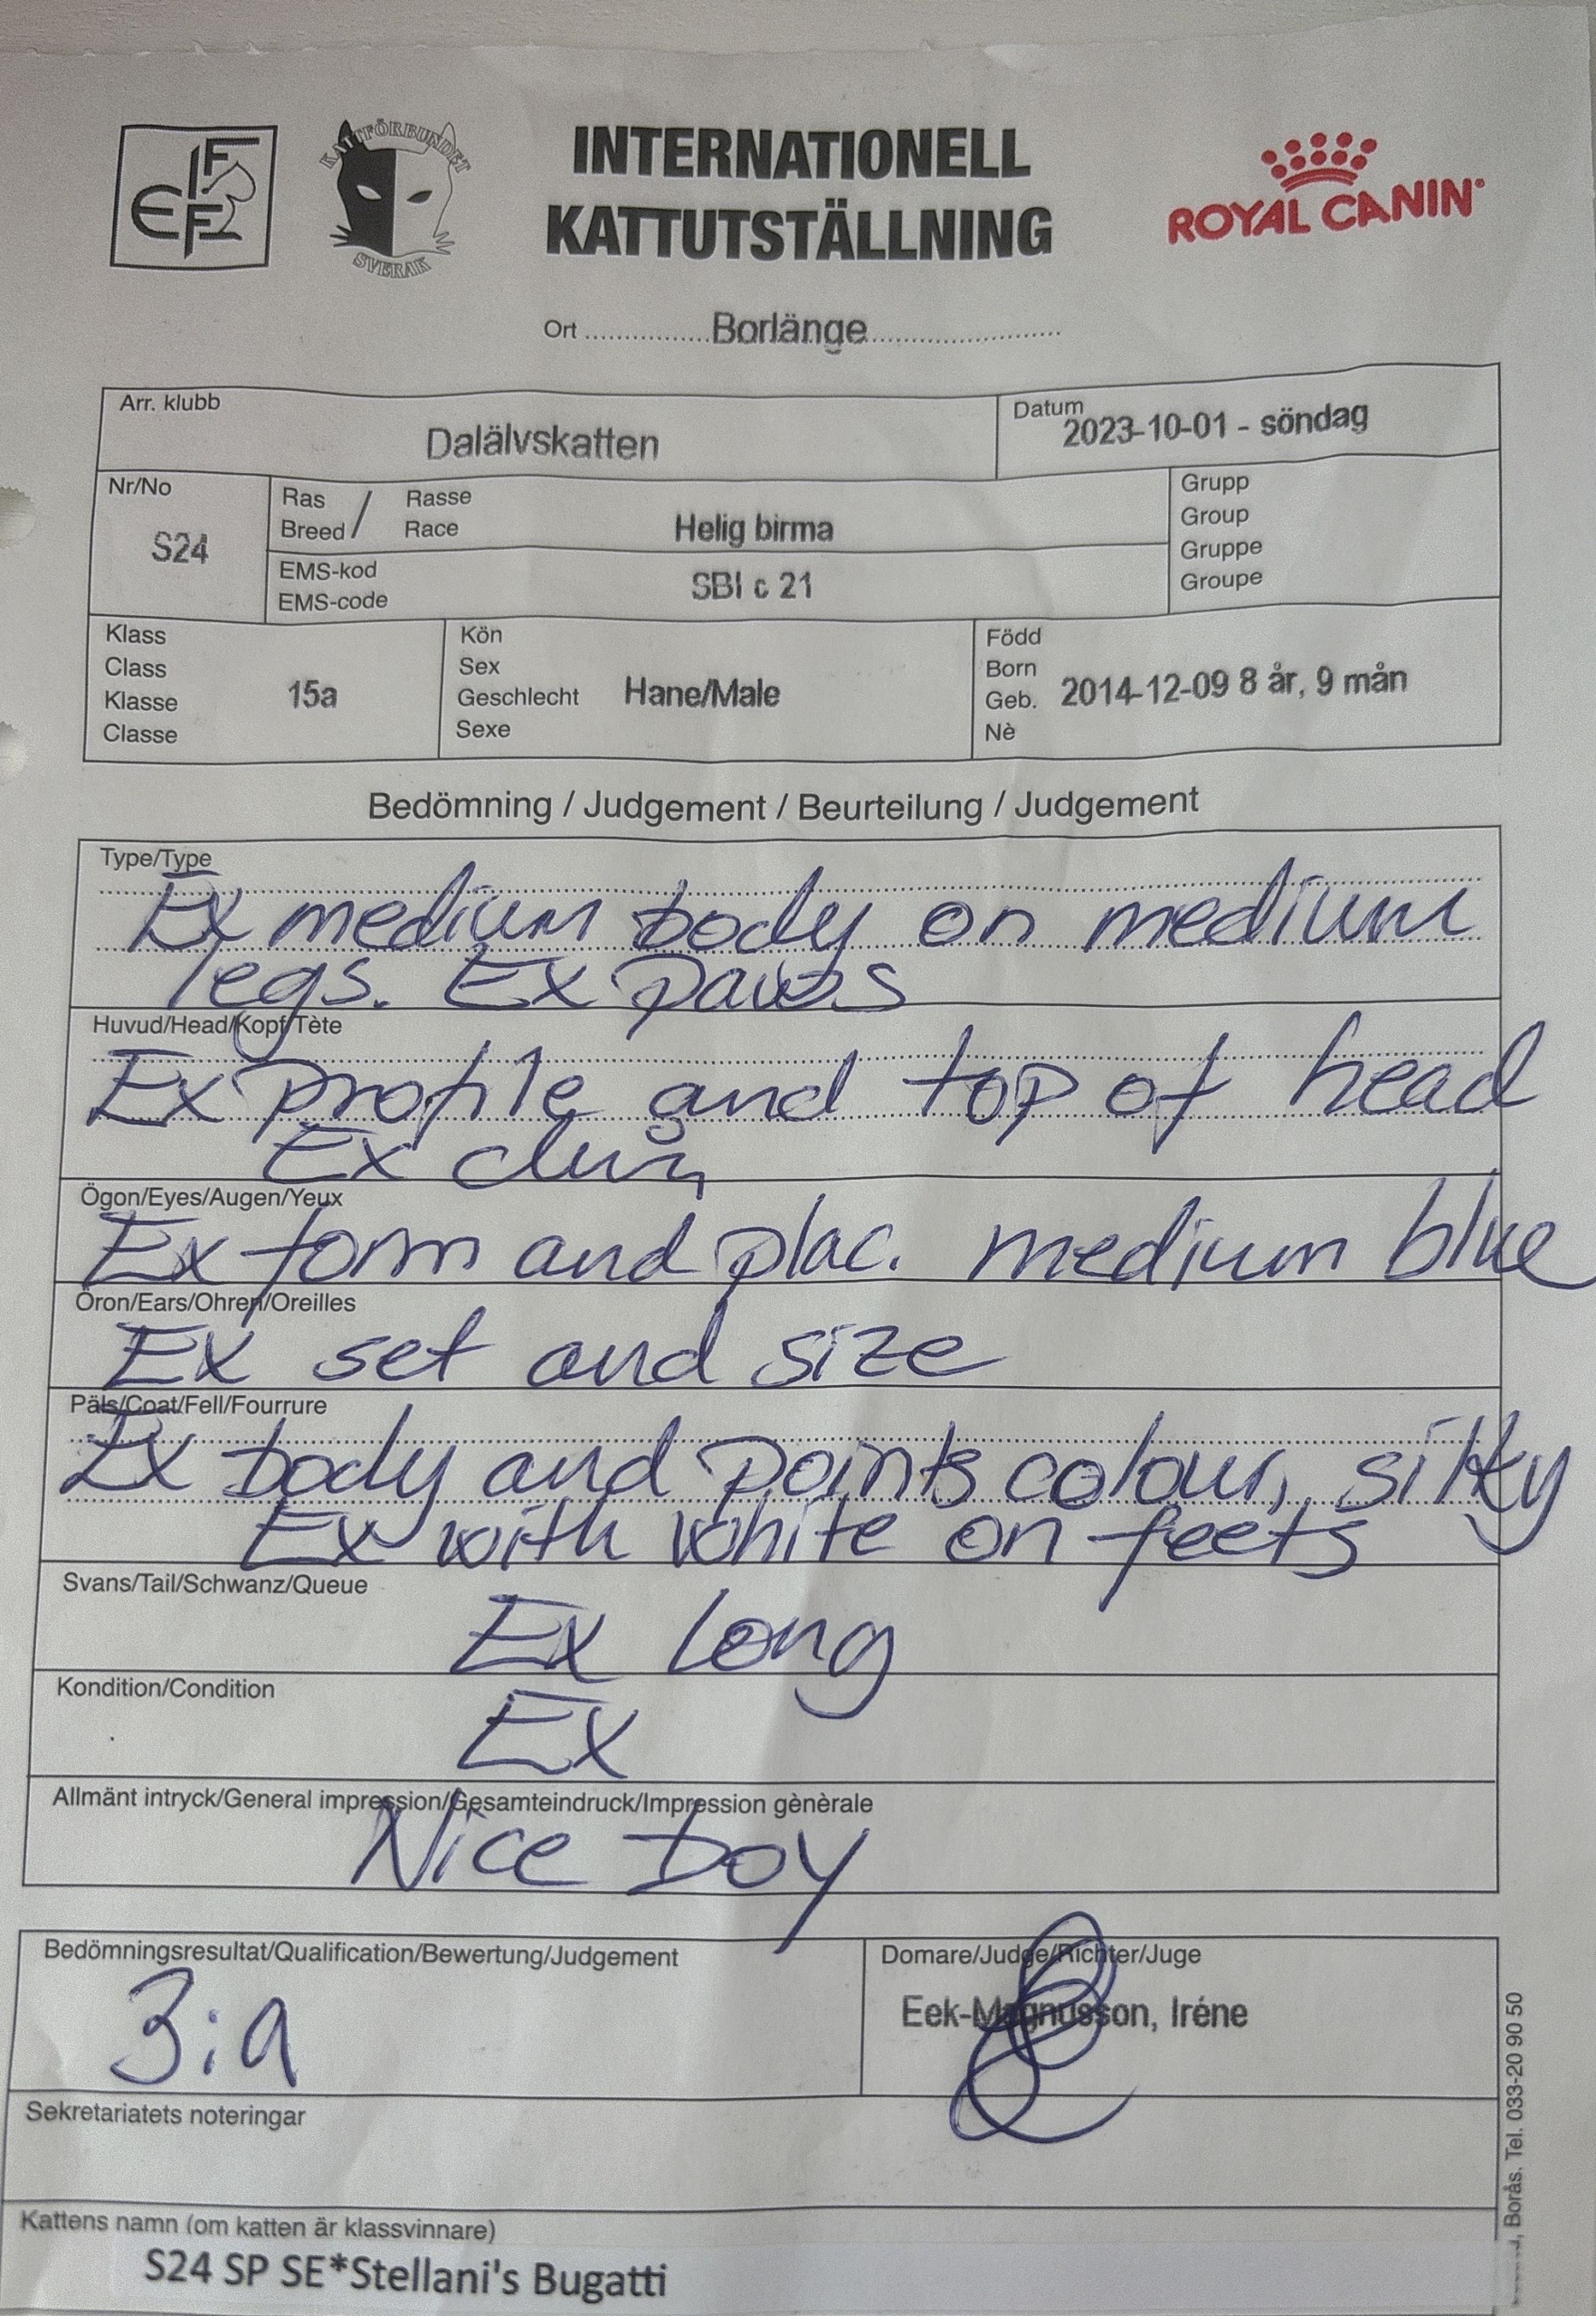 FIFe
KATTFÖRBUNDET
SVERAK
INTERNATIONELL
KATTUTSTÄLLNING
ROYAL CANIN
Ort Borlänge
Arr. klubb
Dalälvskatten
Datum
2023-10-01 - söndag
Nr/No
S24
Ras / Rasse
Breed Race
Helig birma
EMS-kod
EMS-code
SBI c 21
Grupp
Group
Gruppe
Groupe
Klass
Class
Klasse
Classe
15a
Kön
Sex
Geschlecht
Sexe
Hane/Male
Född
Born
Geb.
Nè
2014-12-09 8 år, 9 mån
Bedömning / Judgement / Beurteilung / Judgement
Type/Type
Ex medium body on medium
legs. Ex paws
Huvud/Head/Kopf/Tète
Ex profile and top of head
Ex chin
Ögon/Eyes/Augen/Yeux
Ex form and plac. medium blue
Öron/Ears/Ohren/Oreilles
Ex set and size
Päls/Coat/Fell/Fourrure
Ex body and points colour, silky
Ex with white on feets
Svans/Tail/Schwanz/Queue
Ex long
Kondition/Condition
Ex
Allmänt intryck/General impression/Gesamteindruck/Impression gènèrale
Nice boy
Bedömningsresultat/Qualification/Bewertung/Judgement
3:a
Domare/Judge/Richter/Juge
Eek-Magnusson, Iréne
Sekretariatets noteringar
Kattens namn (om katten är klassvinnare)
S24 SP SE*Stellani's Bugatti
Borås. Tel. 033-20 90 50